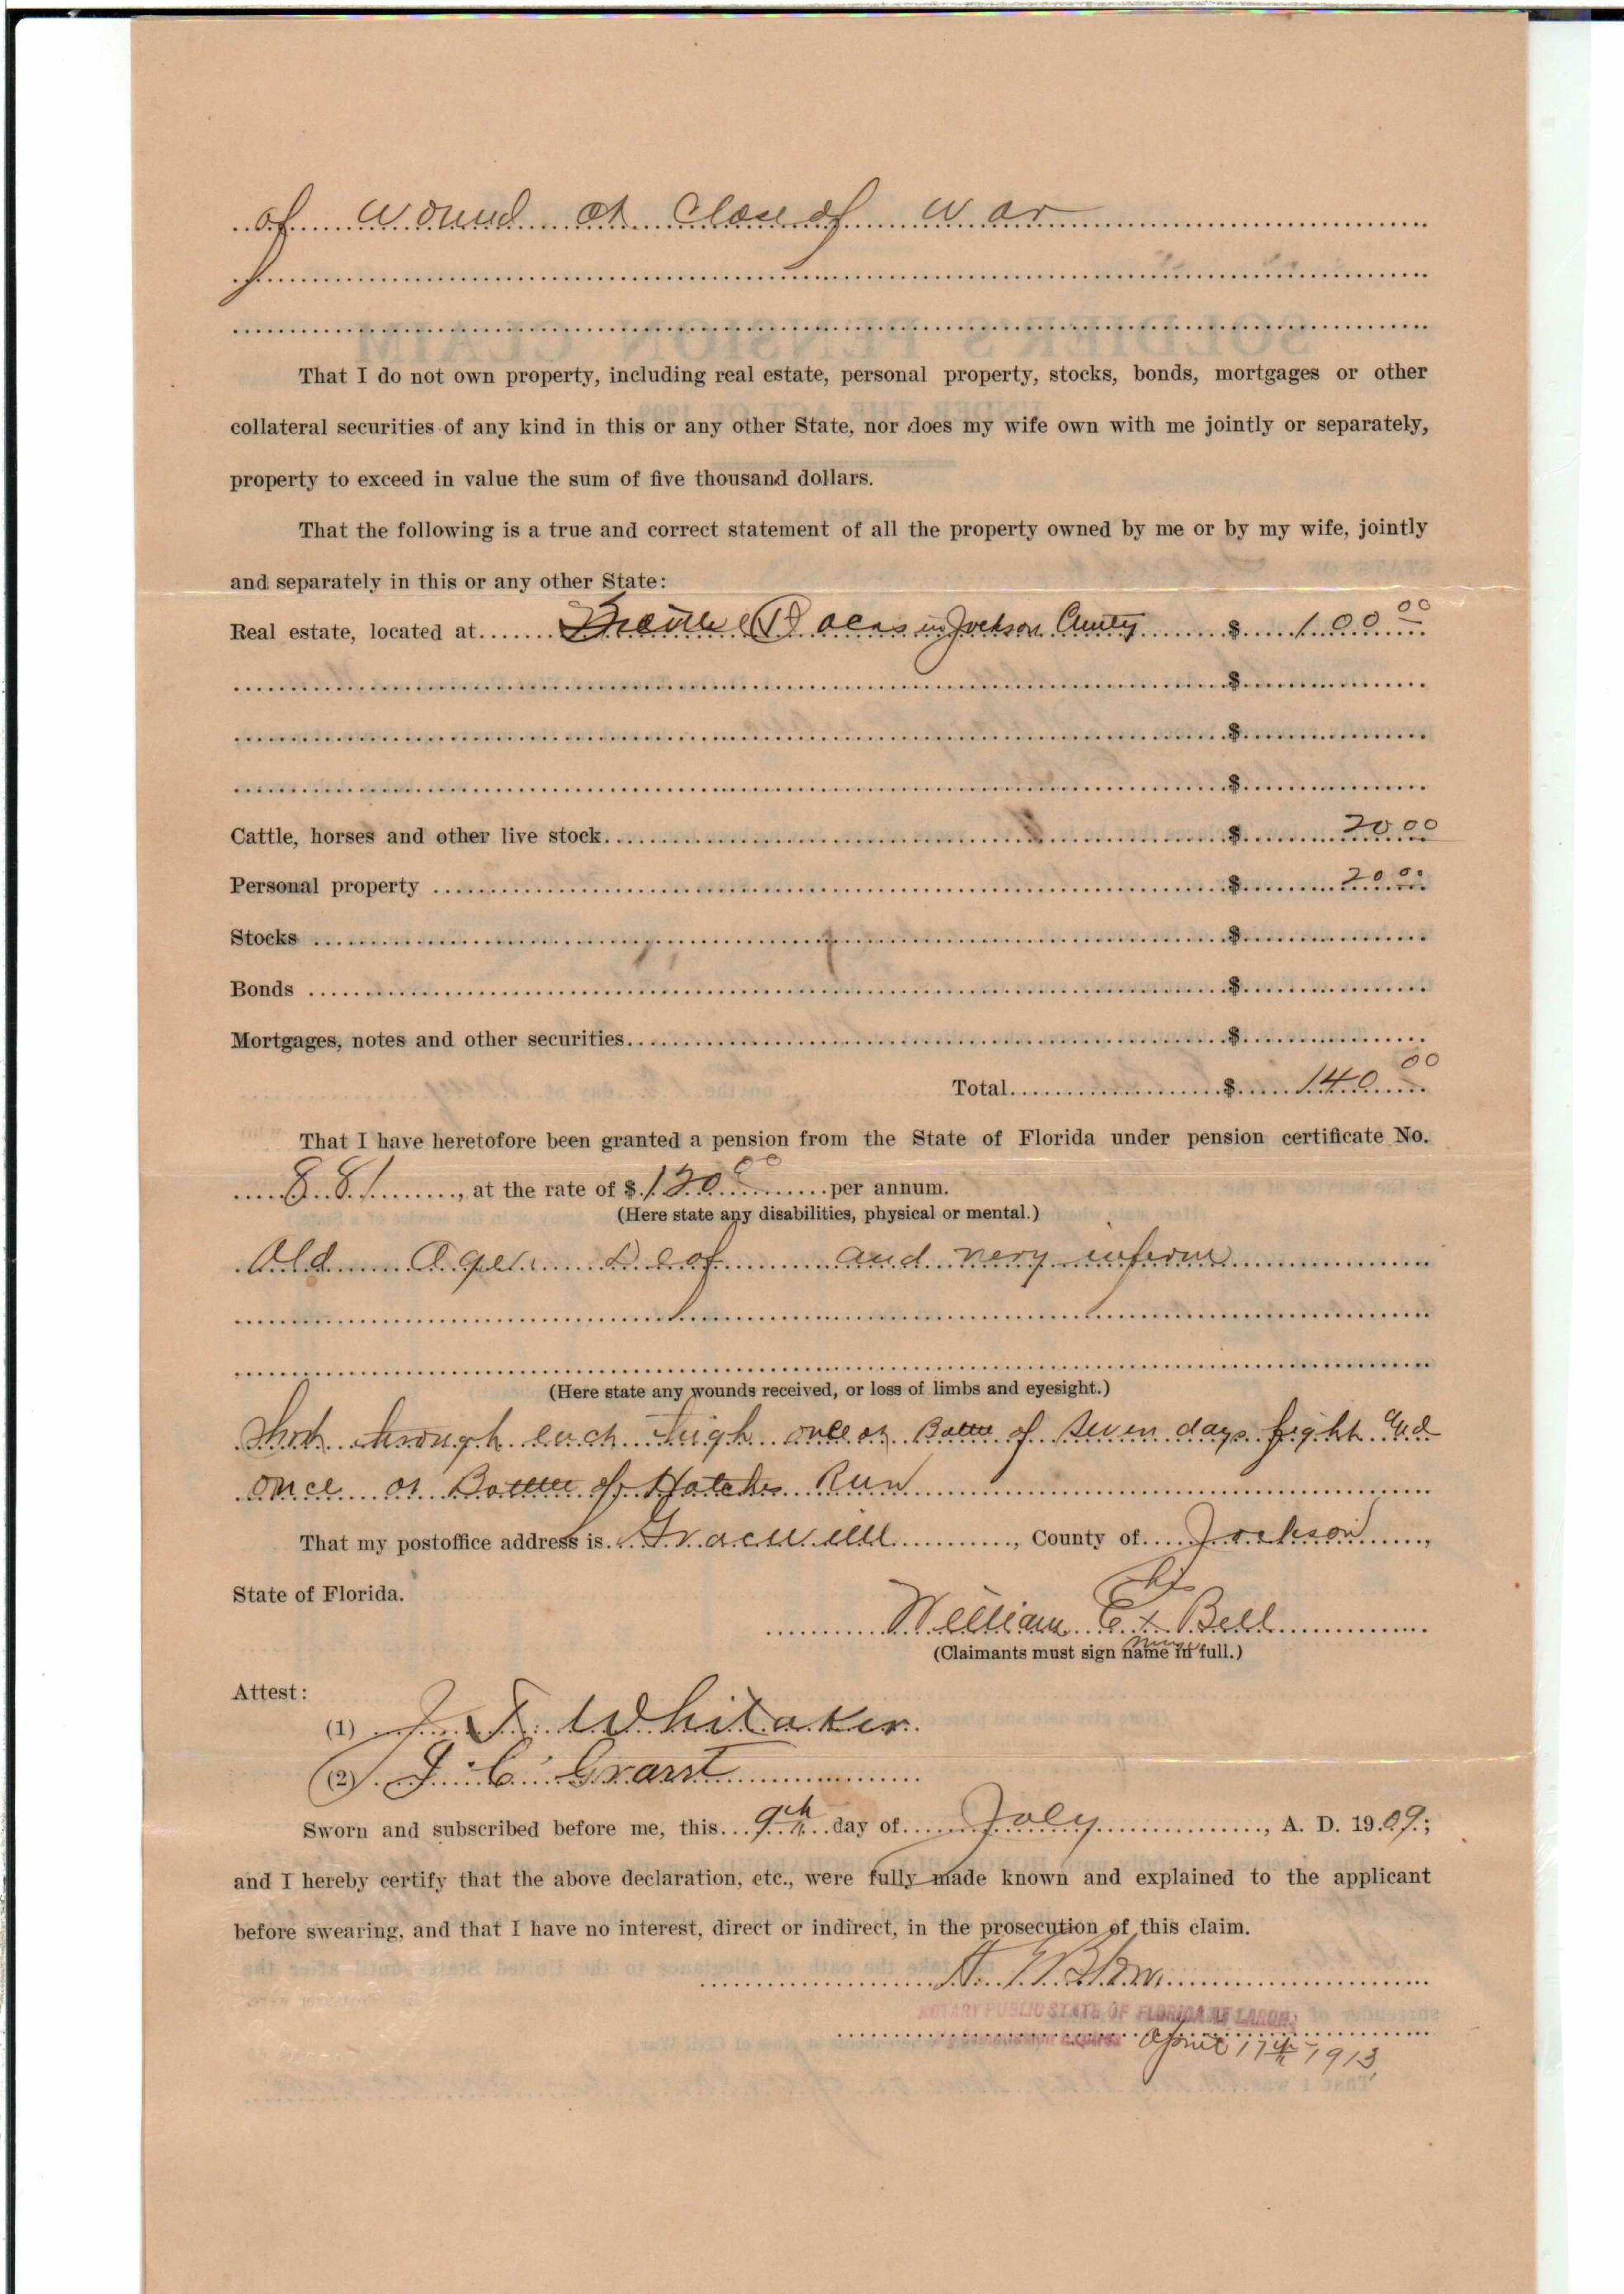 of wound at Close of War
That I do not own property, including real estate, personal property, stocks, bonds, mortgages or other
collateral securities of any kind in this or any other State, nor does my wife own with me jointly or separately,
property to exceed in value the sum of five thousand dollars.
That the following is a true and correct statement of all the property owned by me or by my wife, jointly
and separately in this or any other State:
Real estate, located at in Jackson County $ 100 00
$
$
$
Cattle, horses and other live stock $ 20 00
Personal property $ 20 00
Stocks $
Bonds $
Mortgages, notes and other securities $
Total $ 140 00
That I have heretofore been granted a pension from the State of Florida under pension certificate No.
881, at the rate of $ 120 00 per annum.
(Here state any disabilities, physical or mental.)
Old Age Deaf and very infirm
(Here state any wounds received, or loss of limbs and eyesight.)
Shot through each thigh once at Battle of Seven days fight and
once at Battle of Hatches Run
That my postoffice address is Graceville, County of Jackson,
State of Florida.
his
William E x Bell
mark
(Claimants must sign name in full.)
Attest:
(1) J. T. Whitaker
(2) J. C. Grant
Sworn and subscribed before me, this 9th day of July, A. D. 1909;
and I hereby certify that the above declaration, etc., were fully made known and explained to the applicant
before swearing, and that I have no interest, direct or indirect, in the prosecution of this claim.
NOTARY PUBLIC STATE OF FLORIDA AT LARGE
April 17th 1913